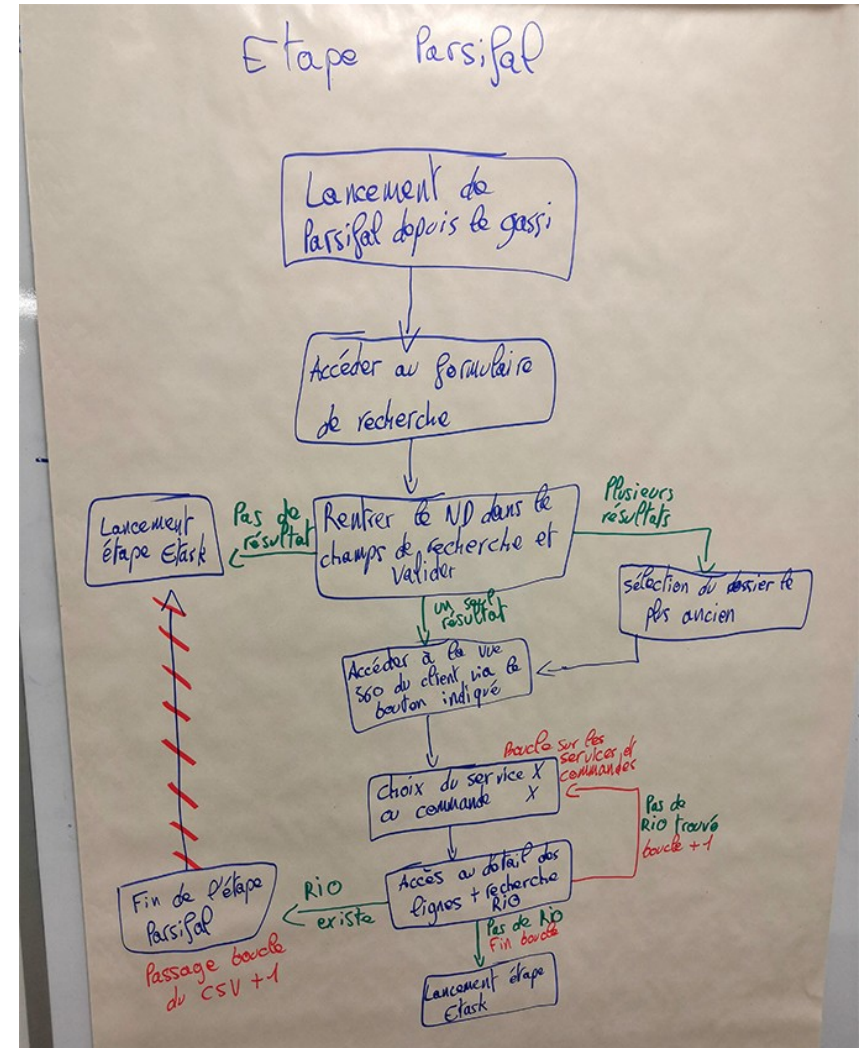 Etape Parsifal
Lancement de
Parsifal depuis le gassi
Accéder au formulaire
de recherche
Lancement
étape Etask
Pas de
résultat
Rentrer le ND dans le
champs de recherche et
valider
Plusieurs
résultats
un seul
résultat
sélection du dossier le
plus ancien
Accéder à la vue
360 du client via le
bouton indiqué
Boucle sur les
services et
commandes
Choix du service X
ou commande X
Pas de
RIO trouvé
boucle +1
Accès au détail des
lignes + recherche
RIO
RIO
existe
Fin de l'étape
Parsifal
Passage boucle
du CSV +1
Pas de RIO
Fin boucle
Lancement étape
Etask